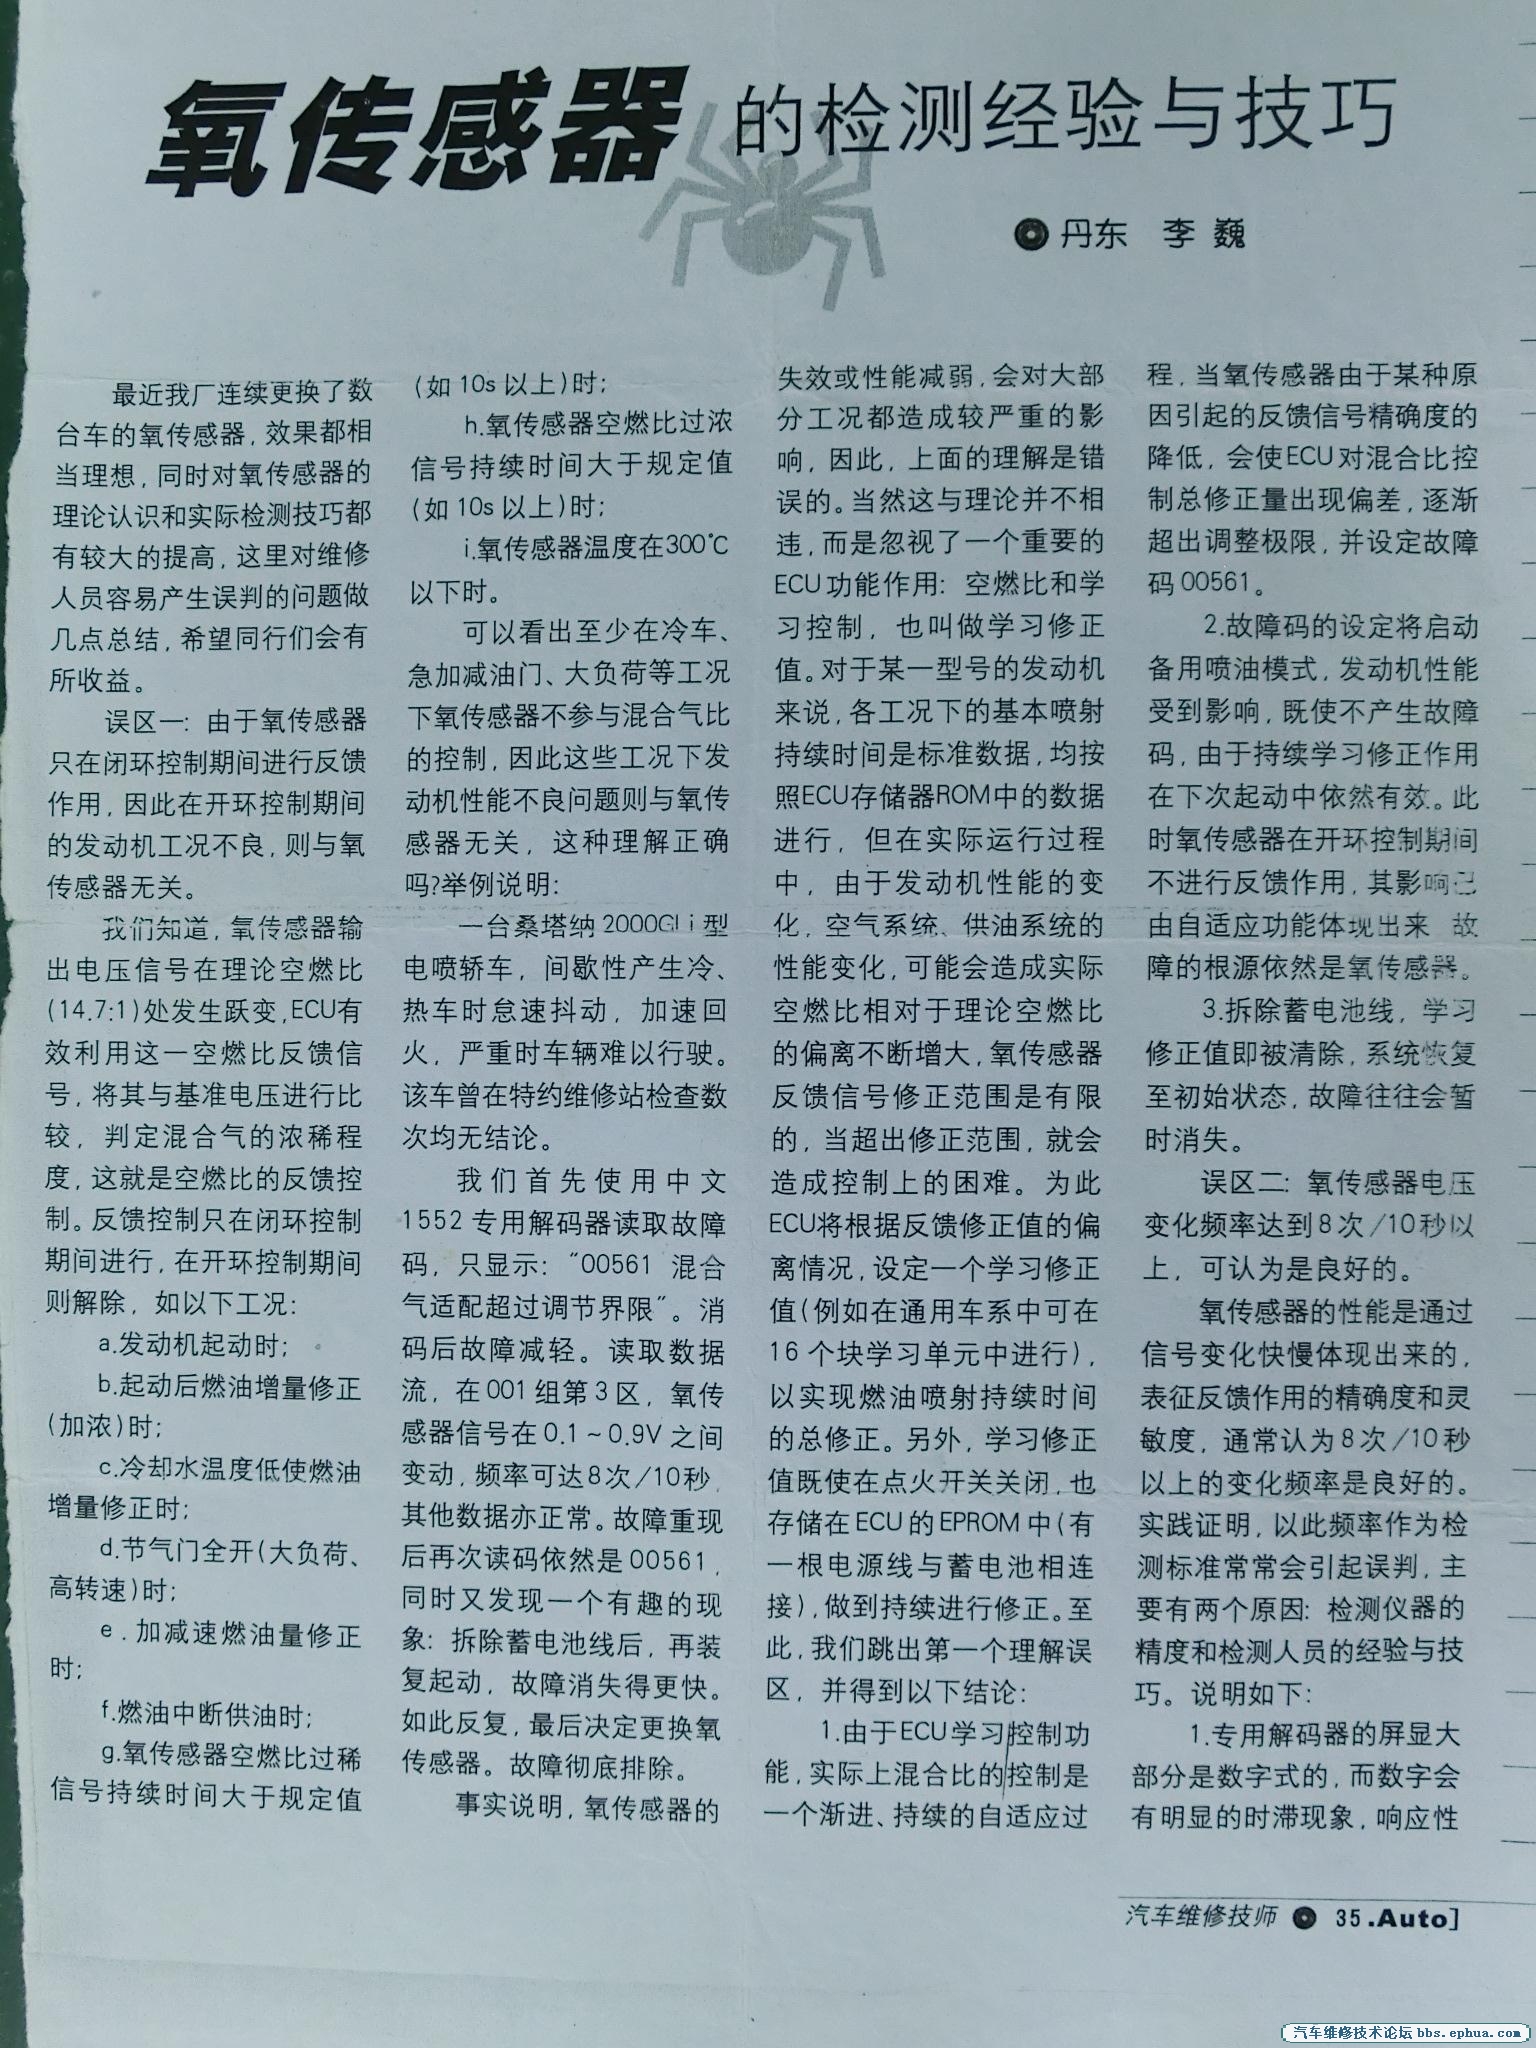 氧传感器的检测经验与技巧
丹东 李巍
最近我厂连续更换了数
台车的氧传感器，效果都相
当理想，同时对氧传感器的
理论认识和实际检测技巧都
有较大的提高，这里对维修
人员容易产生误判的问题做
几点总结，希望同行们会有
所收益。
误区一：由于氧传感器
只在闭环控制期间进行反馈
作用，因此在开环控制期间
的发动机工况不良，则与氧
传感器无关。
我们知道，氧传感器输
出电压信号在理论空燃比
(14.7:1)处发生跃变，ECU有
效利用这一空燃比反馈信
号，将其与基准电压进行比
较，判定混合气的浓稀程
度，这就是空燃比的反馈控
制。反馈控制只在闭环控制
期间进行，在开环控制期间
则解除，如以下工况：
a.发动机起动时；
b.起动后燃油增量修正
(加浓)时；
c.冷却水温度低使燃油
增量修正时；
d.节气门全开(大负荷、
高转速)时；
e.加减速燃油量修正
时；
f.燃油中断供油时；
g.氧传感器空燃比过稀
信号持续时间大于规定值
(如10s以上)时；
h.氧传感器空燃比过浓
信号持续时间大于规定值
(如10s以上)时；
i.氧传感器温度在300℃
以下时。
可以看出至少在冷车、
急加减油门、大负荷等工况
下氧传感器不参与混合气比
的控制，因此这些工况下发
动机性能不良问题则与氧传
感器无关，这种理解正确
吗?举例说明：
一台桑塔纳2000GLi型
电喷轿车，间歇性产生冷、
热车时怠速抖动，加速回
火，严重时车辆难以行驶。
该车曾在特约维修站检查数
次均无结论。
我们首先使用中文
1552专用解码器读取故障
码，只显示："00561 混合
气适配超过调节界限"。消
码后故障减轻。读取数据
流，在001组第3区，氧传
感器信号在0.1~0.9V之间
变动，频率可达8次/10秒，
其他数据亦正常。故障重现
后再次读码依然是00561，
同时又发现一个有趣的现
象：拆除蓄电池线后，再装
复起动，故障消失得更快。
如此反复，最后决定更换氧
传感器。故障彻底排除。
事实说明，氧传感器的
失效或性能减弱，会对大部
分工况都造成较严重的影
响，因此，上面的理解是错
误的。当然这与理论并不相
违，而是忽视了一个重要的
ECU功能作用：空燃比和学
习控制，也叫做学习修正
值。对于某一型号的发动机
来说，各工况下的基本喷射
持续时间是标准数据，均按
照ECU存储器ROM中的数据
进行，但在实际运行过程
中，由于发动机性能的变
化，空气系统、供油系统的
性能变化，可能会造成实际
空燃比相对于理论空燃比
的偏离不断增大，氧传感器
反馈信号修正范围是有限
的，当超出修正范围，就会
造成控制上的困难。为此
ECU将根据反馈修正值的偏
离情况，设定一个学习修正
值(例如在通用车系中可在
16个块学习单元中进行)，
以实现燃油喷射持续时间
的总修正。另外，学习修正
值既使在点火开关关闭，也
存储在ECU的EPROM中(有
一根电源线与蓄电池相连
接)，做到持续进行修正。至
此，我们跳出第一个理解误
区，并得到以下结论：
1.由于ECU学习控制功
能，实际上混合比的控制是
一个渐进、持续的自适应过
程，当氧传感器由于某种原
因引起的反馈信号精确度的
降低，会使ECU对混合比控
制总修正量出现偏差，逐渐
超出调整极限，并设定故障
码00561。
2.故障码的设定将启动
备用喷油模式，发动机性能
受到影响，既使不产生故障
码，由于持续学习修正作用
在下次起动中依然有效。此
时氧传感器在开环控制期间
不进行反馈作用，其影响已
由自适应功能体现出来 故
障的根源依然是氧传感器。
3.拆除蓄电池线，学习
修正值即被清除，系统恢复
至初始状态，故障往往会暂
时消失。
误区二：氧传感器电压
变化频率达到8次/10秒以
上，可认为是良好的。
氧传感器的性能是通过
信号变化快慢体现出来的，
表征反馈作用的精确度和灵
敏度，通常认为8次/10秒
以上的变化频率是良好的。
实践证明，以此频率作为检
测标准常常会引起误判，主
要有两个原因：检测仪器的
精度和检测人员的经验与技
巧。说明如下：
1.专用解码器的屏显大
部分是数字式的，而数字会
有明显的时滞现象，响应性
汽车维修技师 35.Auto]
汽车维修技术论坛 bbs.ephua.com